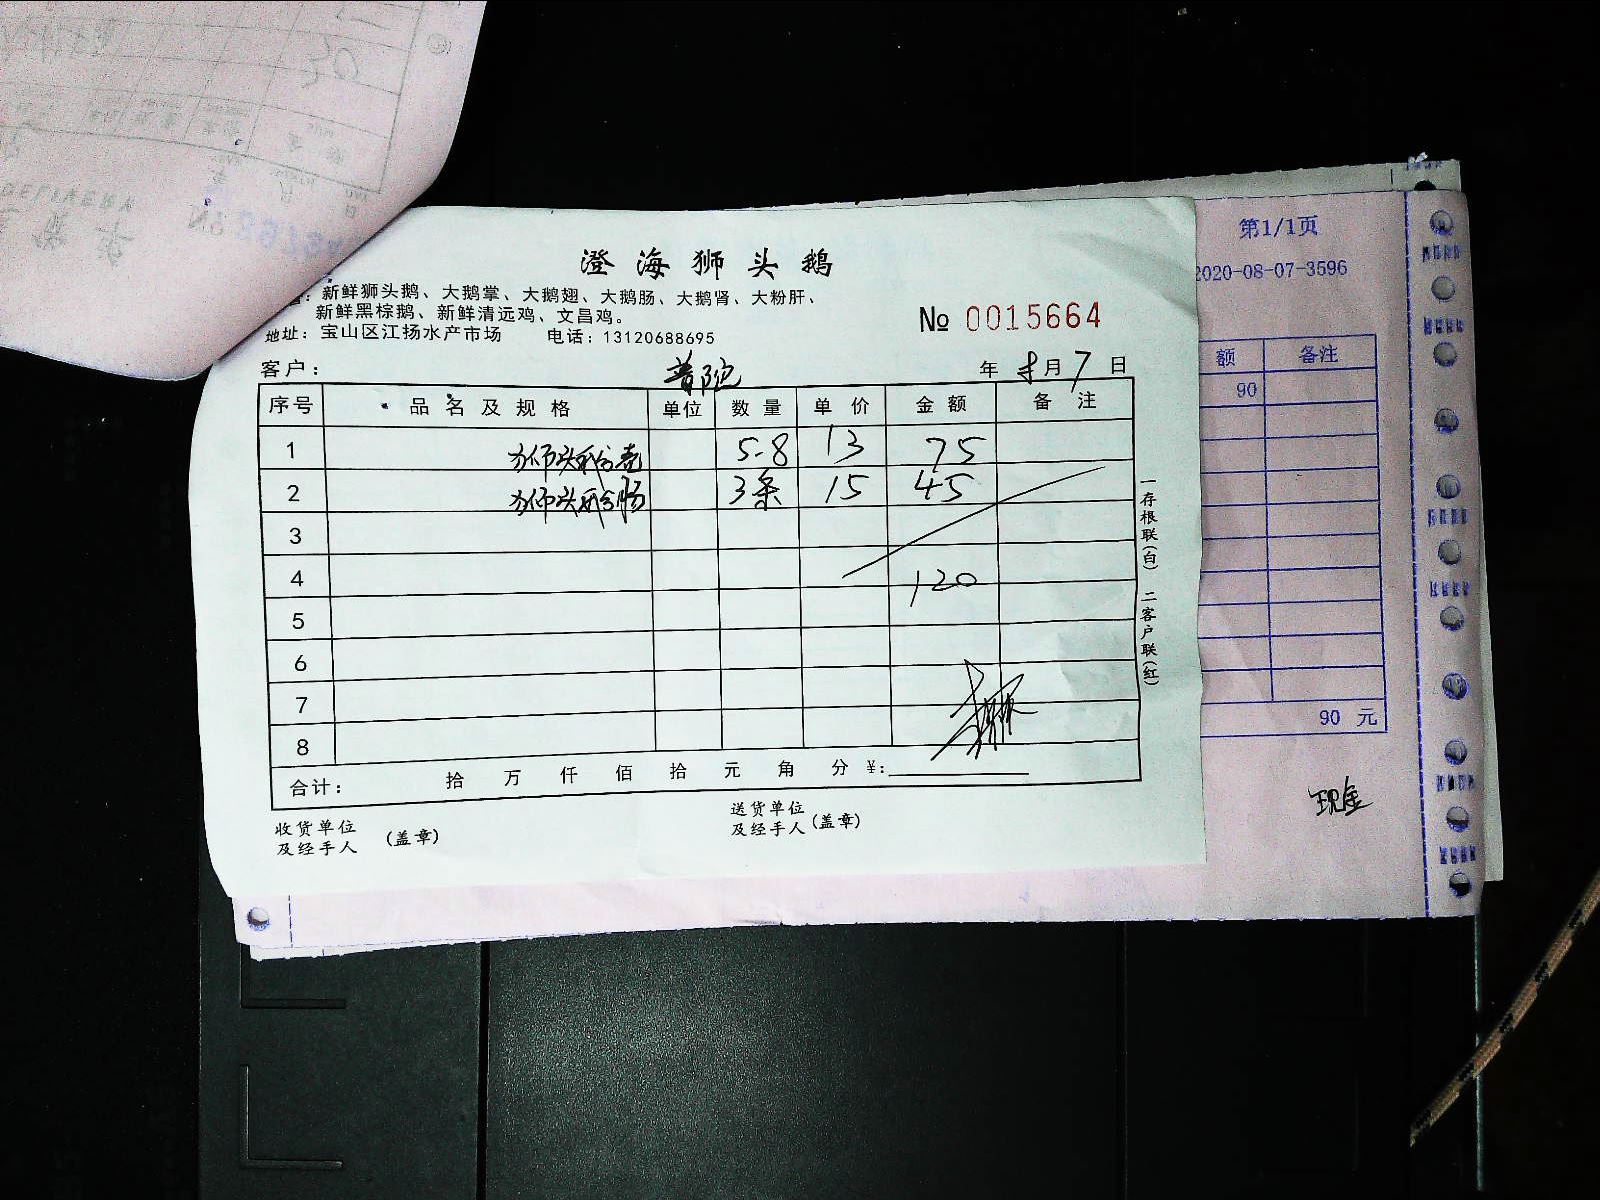 澄海狮头鹅
：新鲜狮头鹅、大鹅掌、大鹅翅、大鹅肠、大鹅肾、大粉肝、
新鲜黑棕鹅、新鲜清远鸡、文昌鸡。
地址：宝山区江扬水产市场 电话：13120688695
№ 0015664
客户： 普陀 年 8月 7 日
序号 品名及规格 单位 数量 单价 金额 备注
1 狮头 5.8 13 75
2 狮头 肠 3条 15 45
3
4 120
5
6
7
8
合计： 拾 万 仟 佰 拾 元 角 分 ¥:
收货单位
及经手人 (盖章)
送货单位
及经手人 (盖章)
一存根联(白) 二客户联(红)
第1/1页
2020-08-07-3596
额 备注
90
90 元
现金